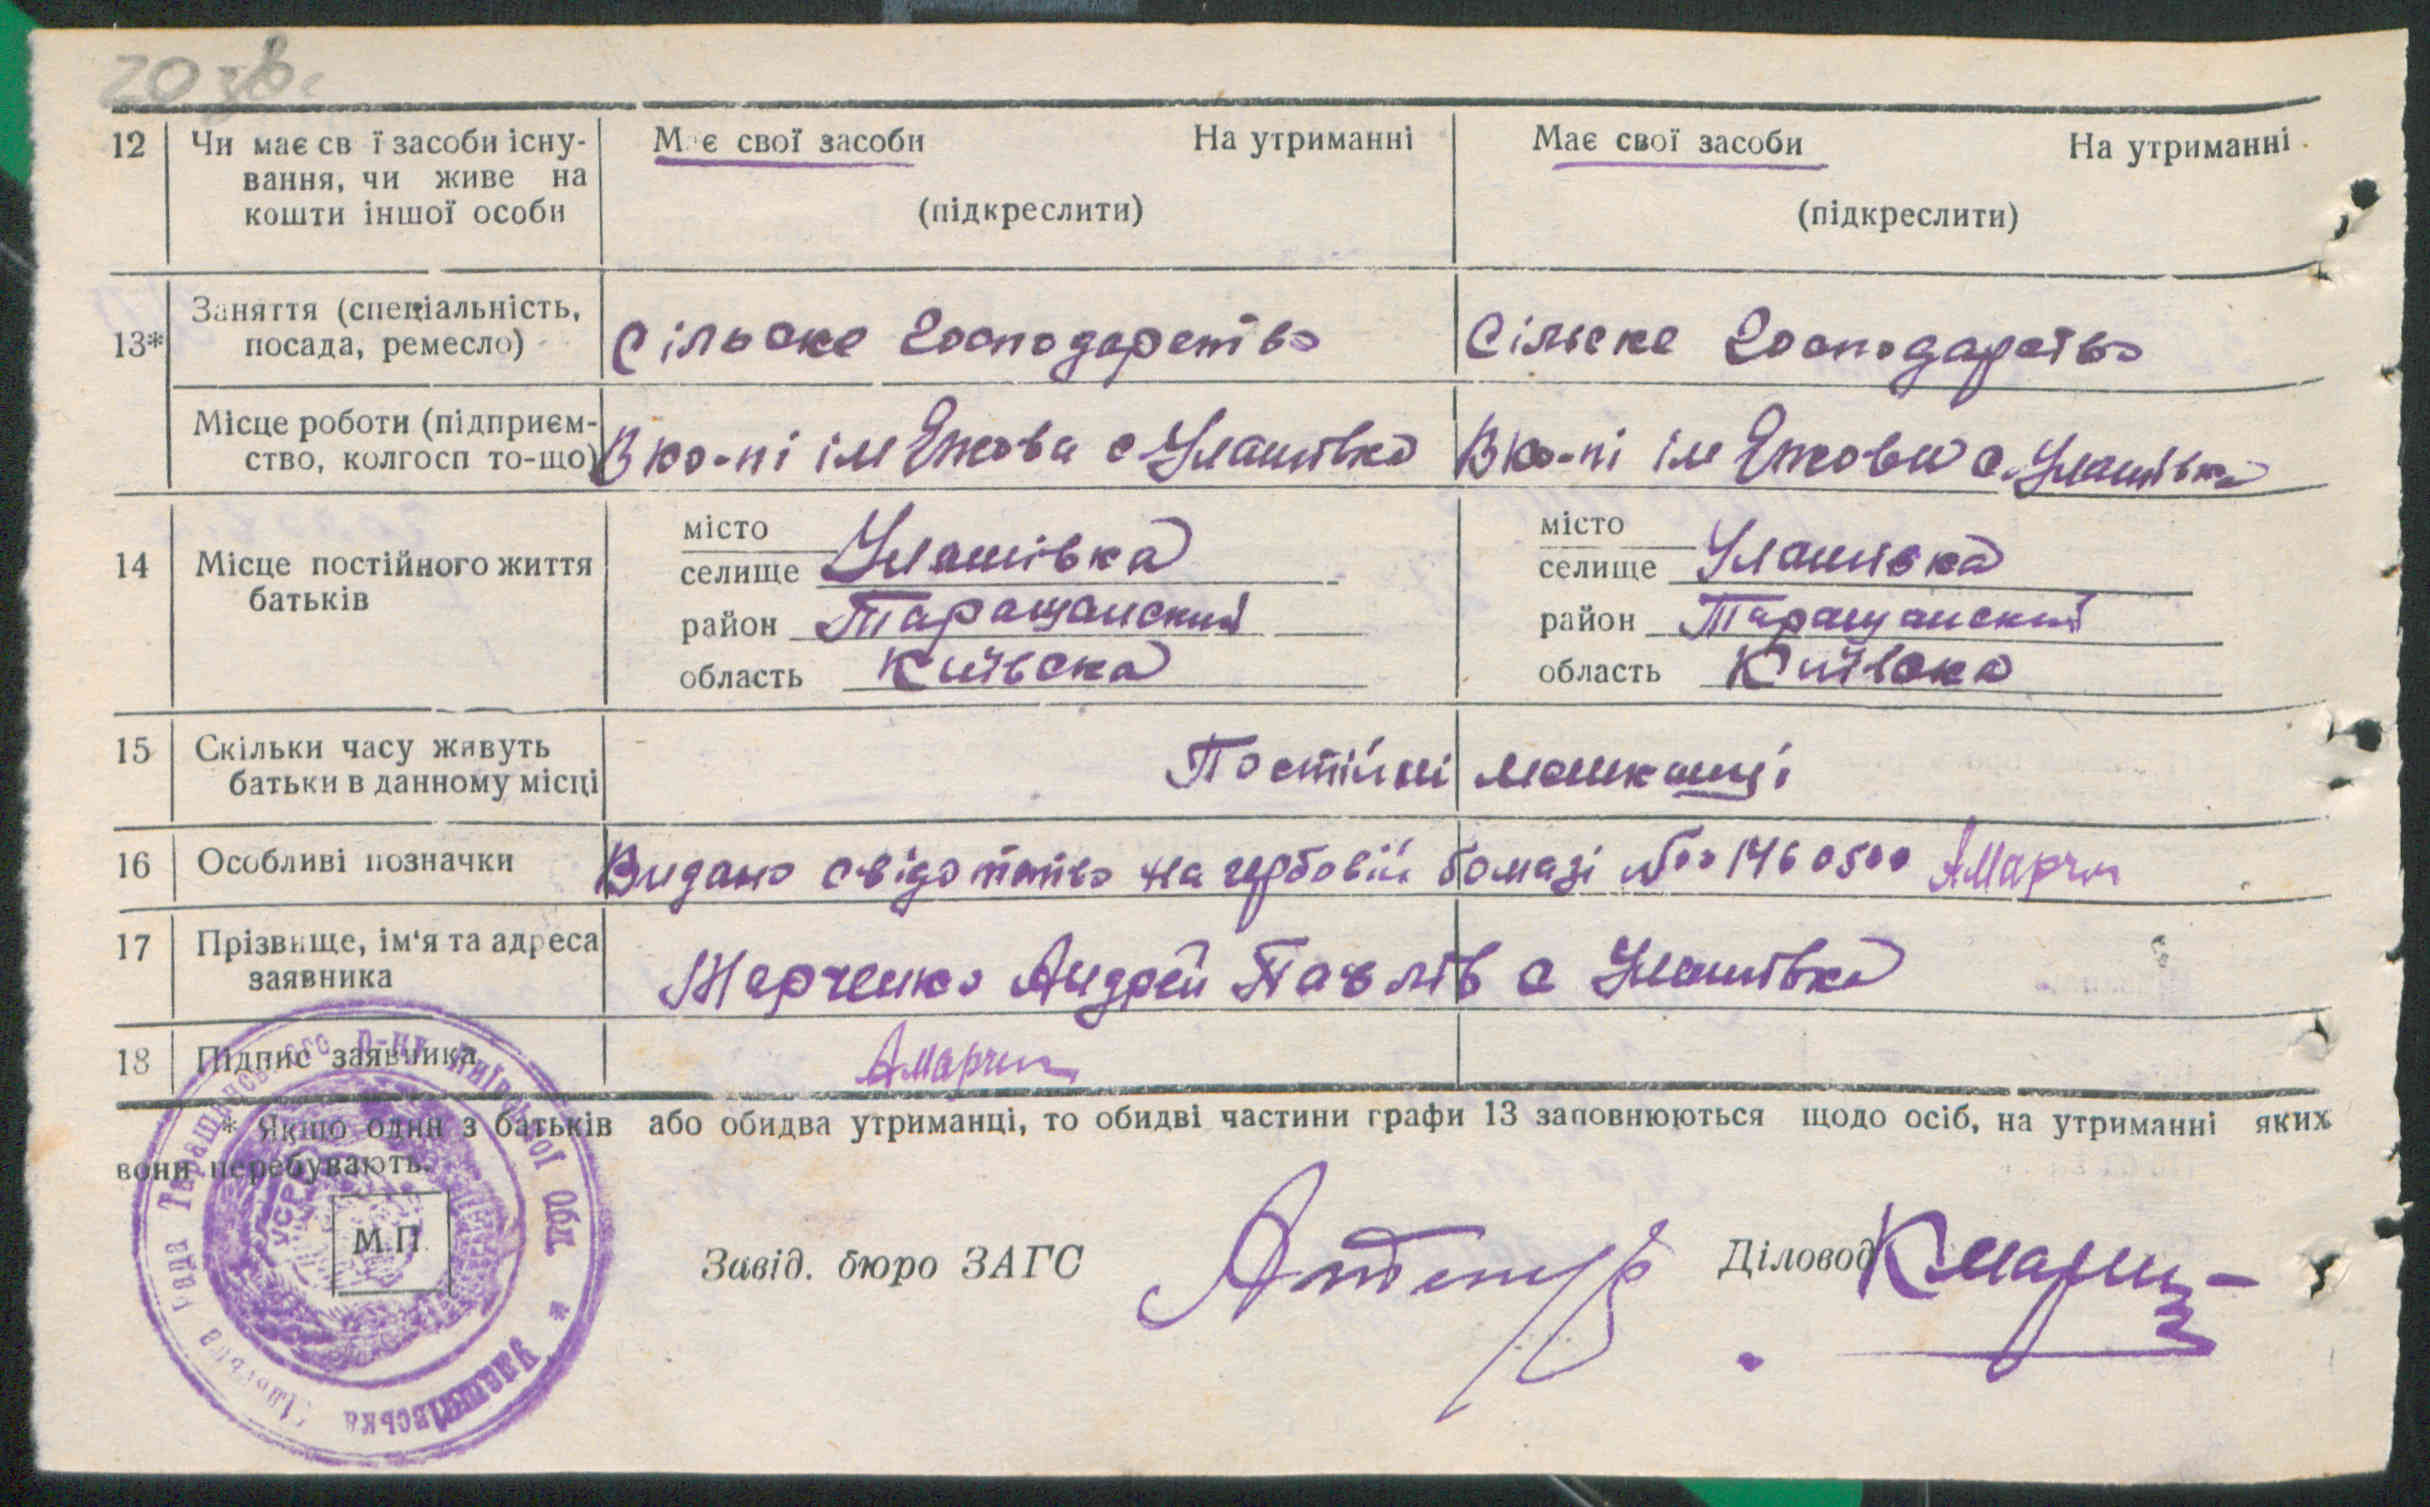 20 зв.
12 Чи має св ї засоби існу- М є свої засоби На утриманні Має свої засоби На утриманні
вання, чи живе на
кошти іншої особи (підкреслити) (підкреслити)
13* Заняття (спеціальність, Сільске господарство Сільске господарство
посада, ремесло)
Місце роботи (підприєм- В ко-пі ім Ежова с Улашівка В ко-пі ім Ежова с. Улашівка
ство, колгосп то-що)
14 Місце постійного життя місто місто
батьків селище Улашівка селище Улашівка
район Таращанский район Таращанский
область Київска область Київска
15 Скільки часу живуть Постійні мешканці
батьки в данному місці
16 Особливі позначки Видано свідотство на гербовій бомазі №
17 Прізвище, ім'я та адреса Марченко Андрей Павлів с Улашівка
заявника
18 Підпис заявника АМарчен
* Якщо один з батьків або обидва утриманці, то обидві частини графи 13 заповнюються щодо осіб, на утриманні яких
вони перебувають.
М.П.
Завід. бюро ЗАГС Діловод
Улашівська сільська рада Таращанського р-ну Київської обл. *
УСРР